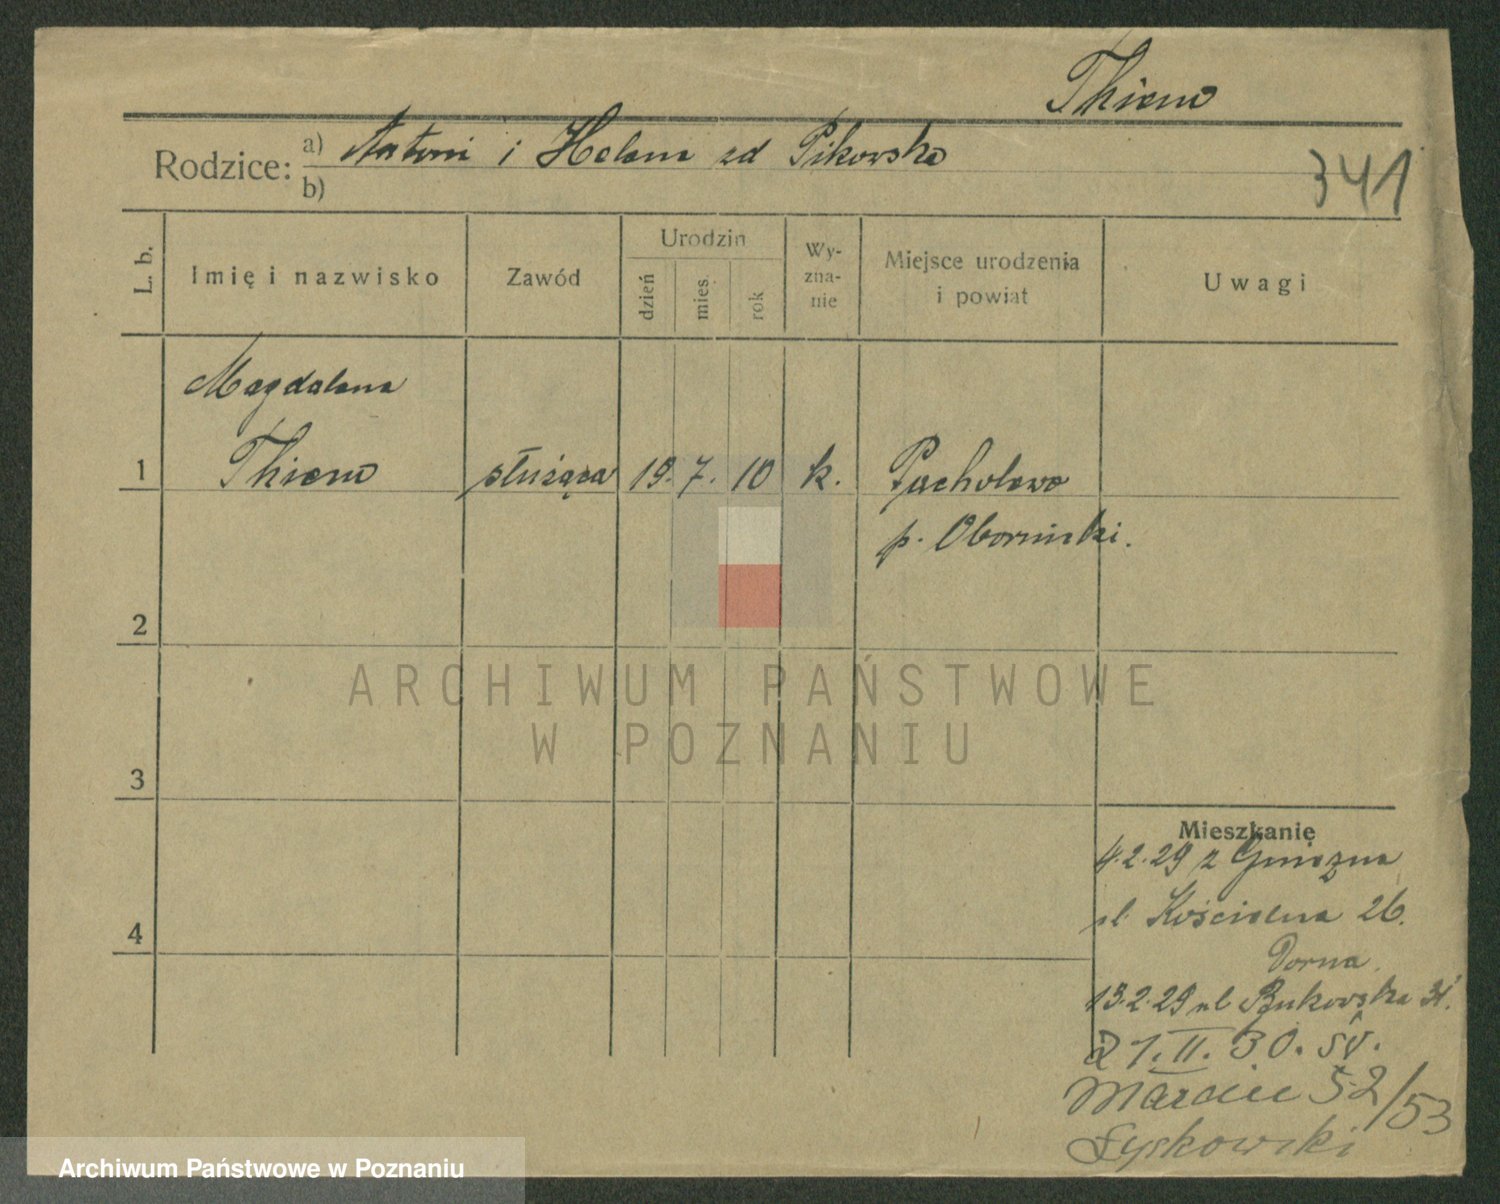 Thiem
Rodzice: a) Antoni i Helena zd Pikowska
b)
341
L. b.
Imię i nazwisko
Zawód
Urodzin
dzień
mies.
rok
Wy-
zna-
nie
Miejsce urodzenia
i powiat
Uwagi
Magdalena
1 Thiem służąca 19. 7. 10 k. Pacholewo
p. Obornicki.
2
3
4
Mieszkanie
4.2.29 z Gniezna
ul. Kościelna 26.
Dorna
13.2.29 ul Bukowska 31.
21.II.30. Św.
Marcin 52/53
Łyskowski
ARCHIWUM PAŃSTWOWE
W POZNANIU
Archiwum Państwowe w Poznaniu